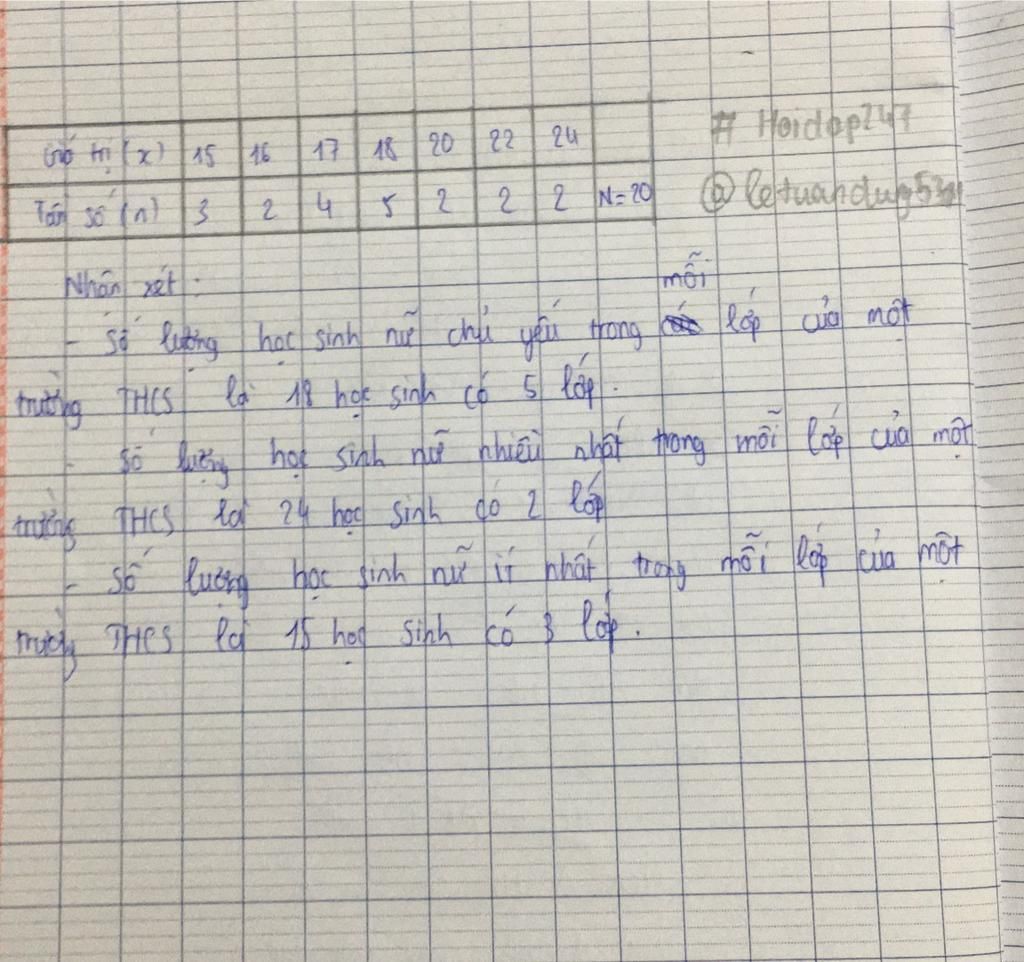 Giá trị (x) 15 16 17 18 20 22 24
Tần số (n) 3 2 4 5 2 2 2 N=20
# Hoidap247
@letuandug53
Nhận xét:
mỗi
- Số lượng học sinh nữ chủ yếu trong lớp của một
trường THCS là 18 học sinh có 5 lớp.
- số lượng học sinh nữ nhiều nhất trong mỗi lớp của một
trường THCS là 24 học sinh có 2 lớp
- Số lượng học sinh nữ ít nhất trong mỗi lớp của một
trường THCS là 15 học sinh có 3 lớp.